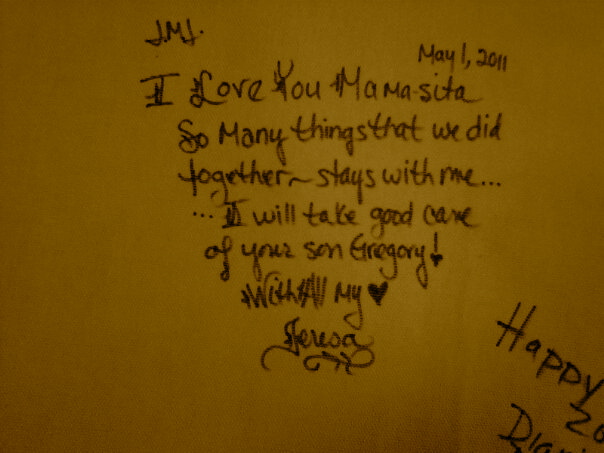 J.M.J.
May 1, 2011
I Love You Mama-sita
So Many things that we did
together~ stays with me...
... I will take good care
of your son Gregory!
With All My ♥
Teresa
Happy